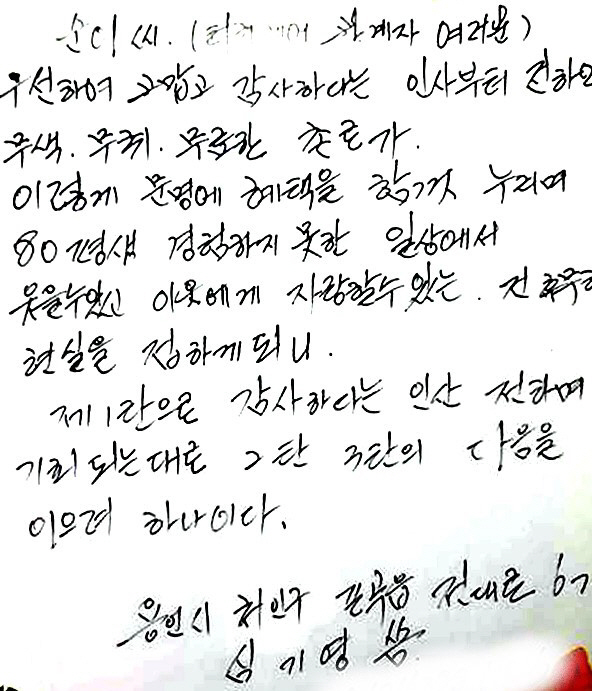 순이 씨. ( 관계자 여러분)
우선하여 고맙고 감사하다는 인사부터 전하며
무색. 무취. 무료한 촌로가.
이렇게 문명에 혜택을 함것 누리며
80평생 경험하지 못한 일상에서
웃을수있고 이웃에게 자랑할수 있는. 전후무
현실을 접하게 되니.
제1탄으로 감사하다는 인산 전하며
기회 되는대로 2탄 3탄의 다음을
이으려 하나이다.
용인시 처인구 포곡읍 전대로 67
심기영